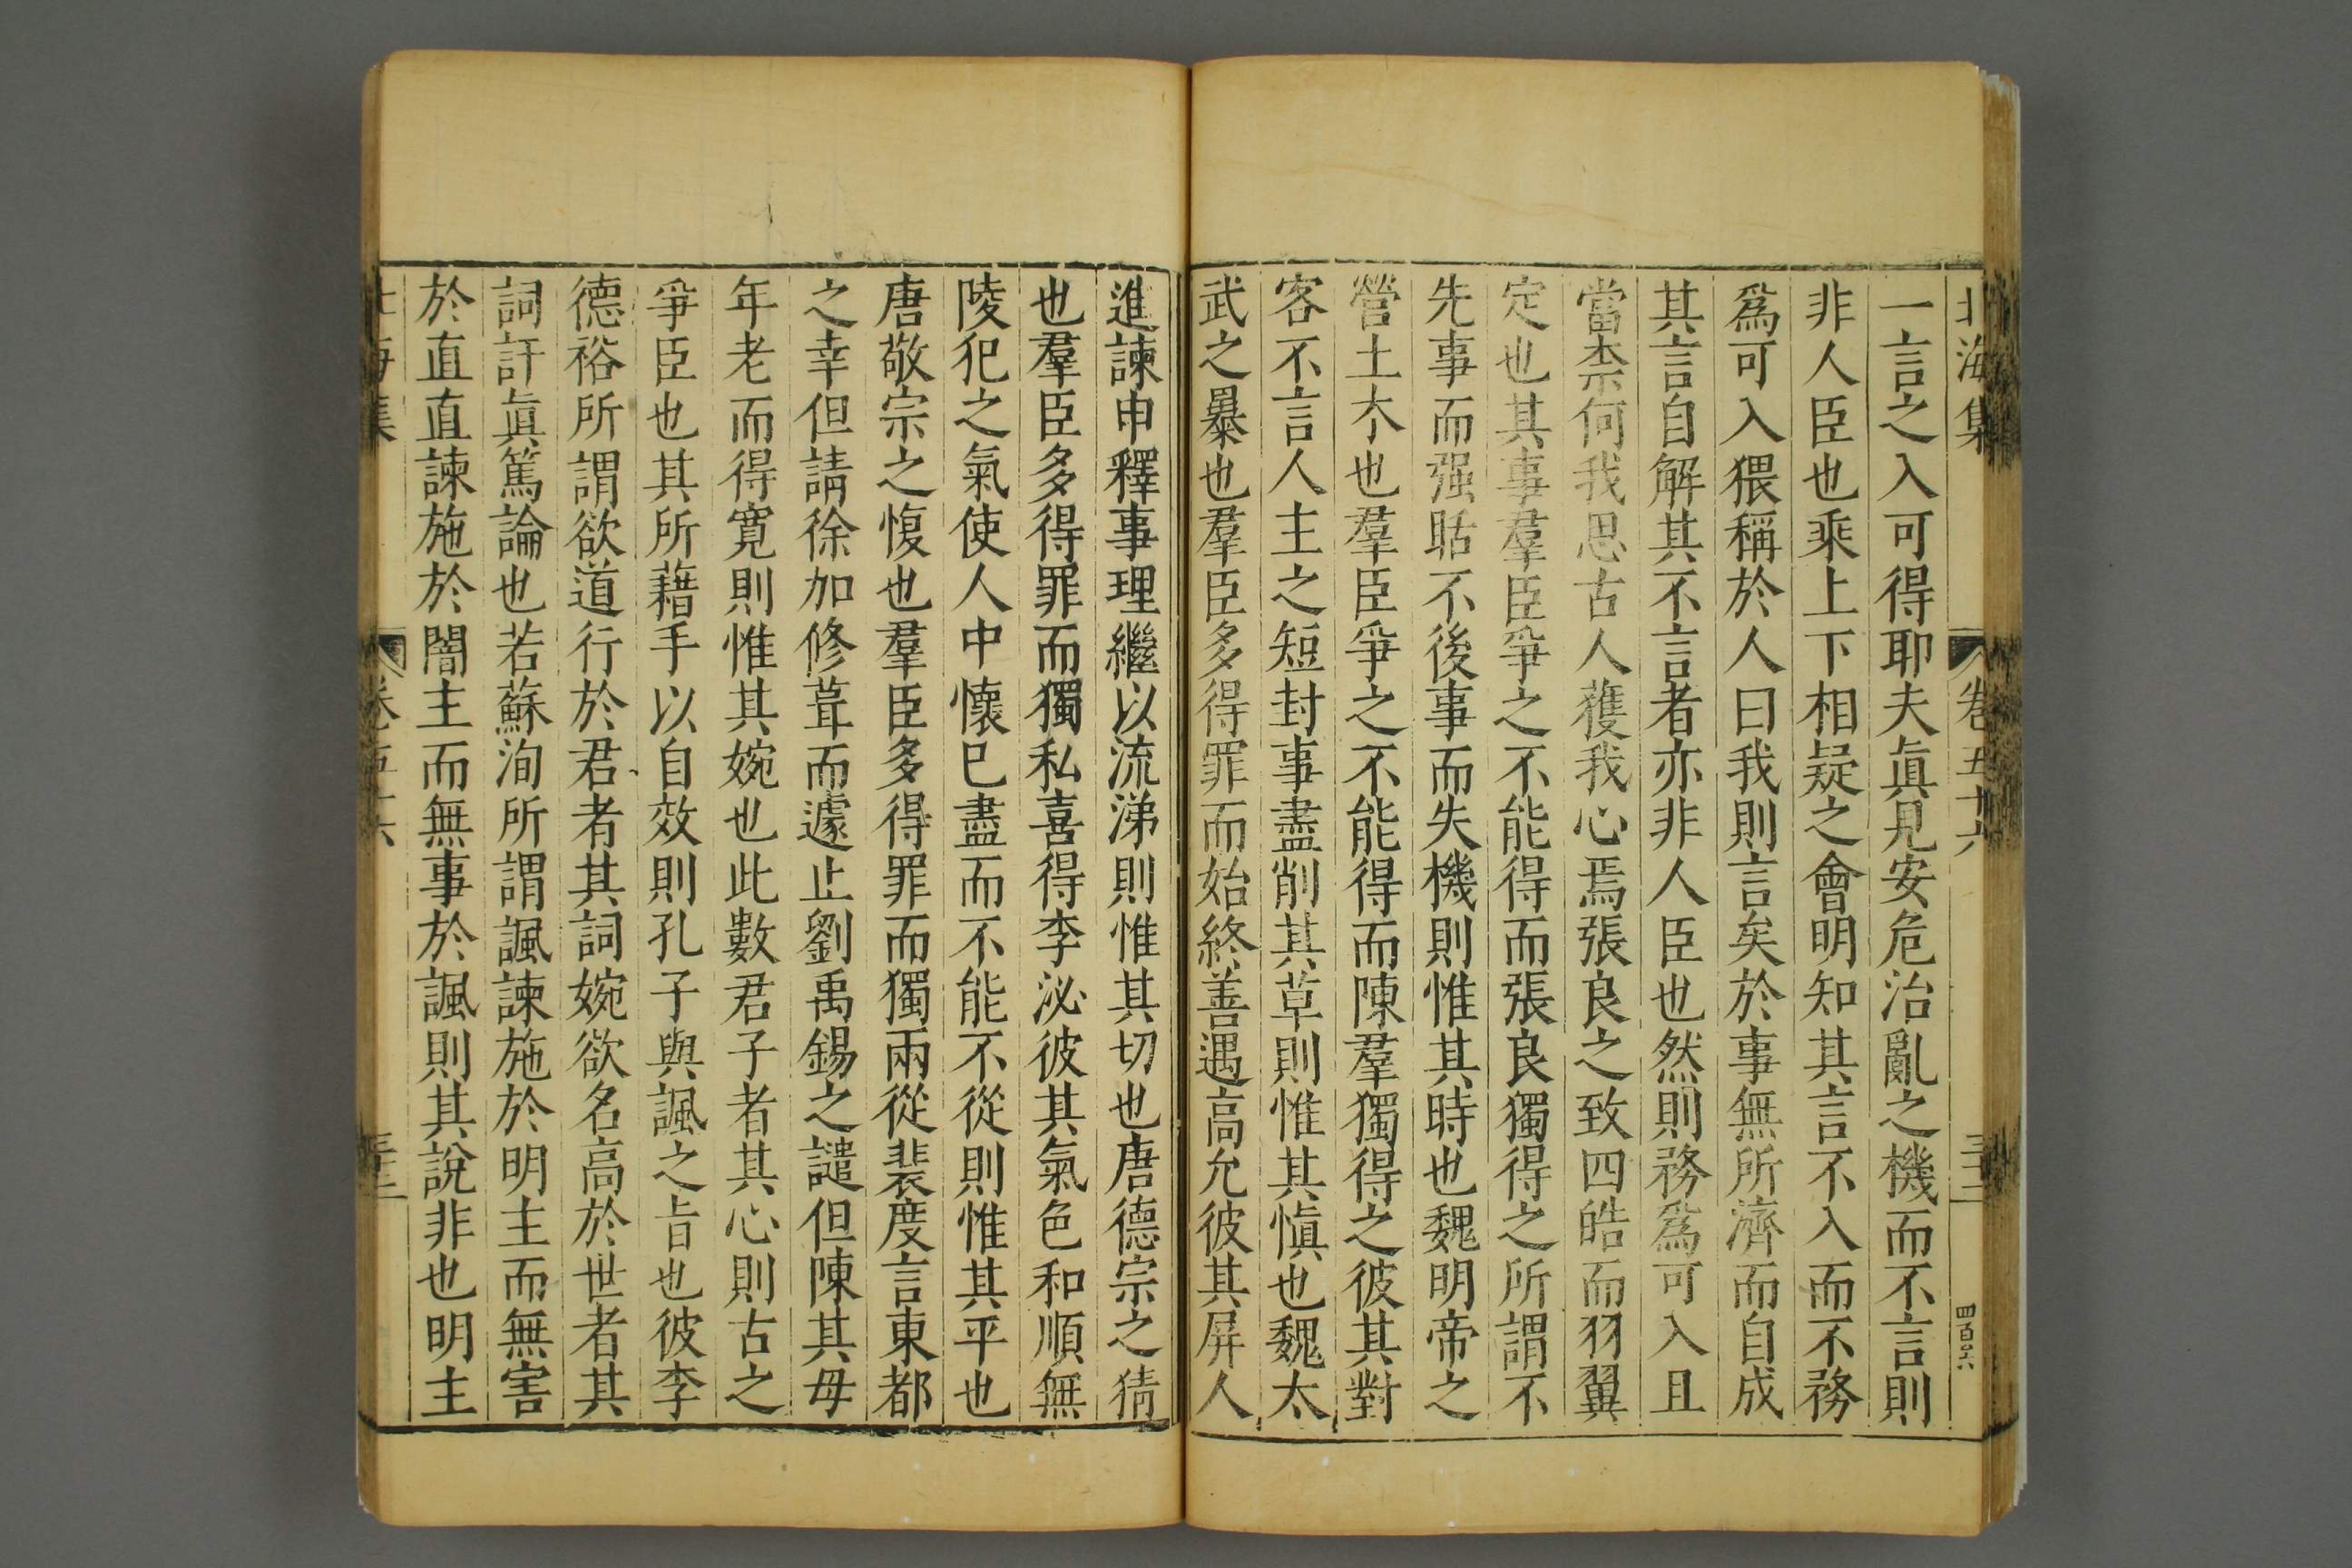 北海集 卷五十六 三二 四百六
一言之入可得耶夫眞見安危治亂之機而不言則
非人臣也乘上下相疑之會明知其言不入而不務
爲可入猥稱於人曰我則言矣於事無所濟而自成
其言自解其不言者亦非人臣也然則務爲可入且
當柰何我思古人獲我心焉張良之致四皓而羽翼
定也其事羣臣爭之不能得而張良獨得之所謂不
先事而强聒不後事而失機則惟其時也魏明帝之
營土木也羣臣爭之不能得而陳羣獨得之彼其對
客不言人主之短封事盡削其草則惟其愼也魏太
武之暴也羣臣多得罪而始終善遇高允彼其屏人
進諫申釋事理繼以流涕則惟其切也唐德宗之猜
也羣臣多得罪而獨私喜得李泌彼其氣色和順無
陵犯之氣使人中懷已盡而不能不從則惟其平也
唐敬宗之愎也羣臣多得罪而獨兩從裴度言東都
之幸但請徐加修葺而遽止劉禹錫之譴但陳其母
年老而得寛則惟其婉也此數君子者其心則古之
爭臣也其所藉手以自效則孔子與諷之旨也彼李
德裕所謂欲道行於君者其詞婉欲名高於世者其
詞訐眞篤論也若蘇洵所謂諷諫施於明主而無害
於直直諫施於闇主而無事於諷則其說非也明主
海集 卷五十六